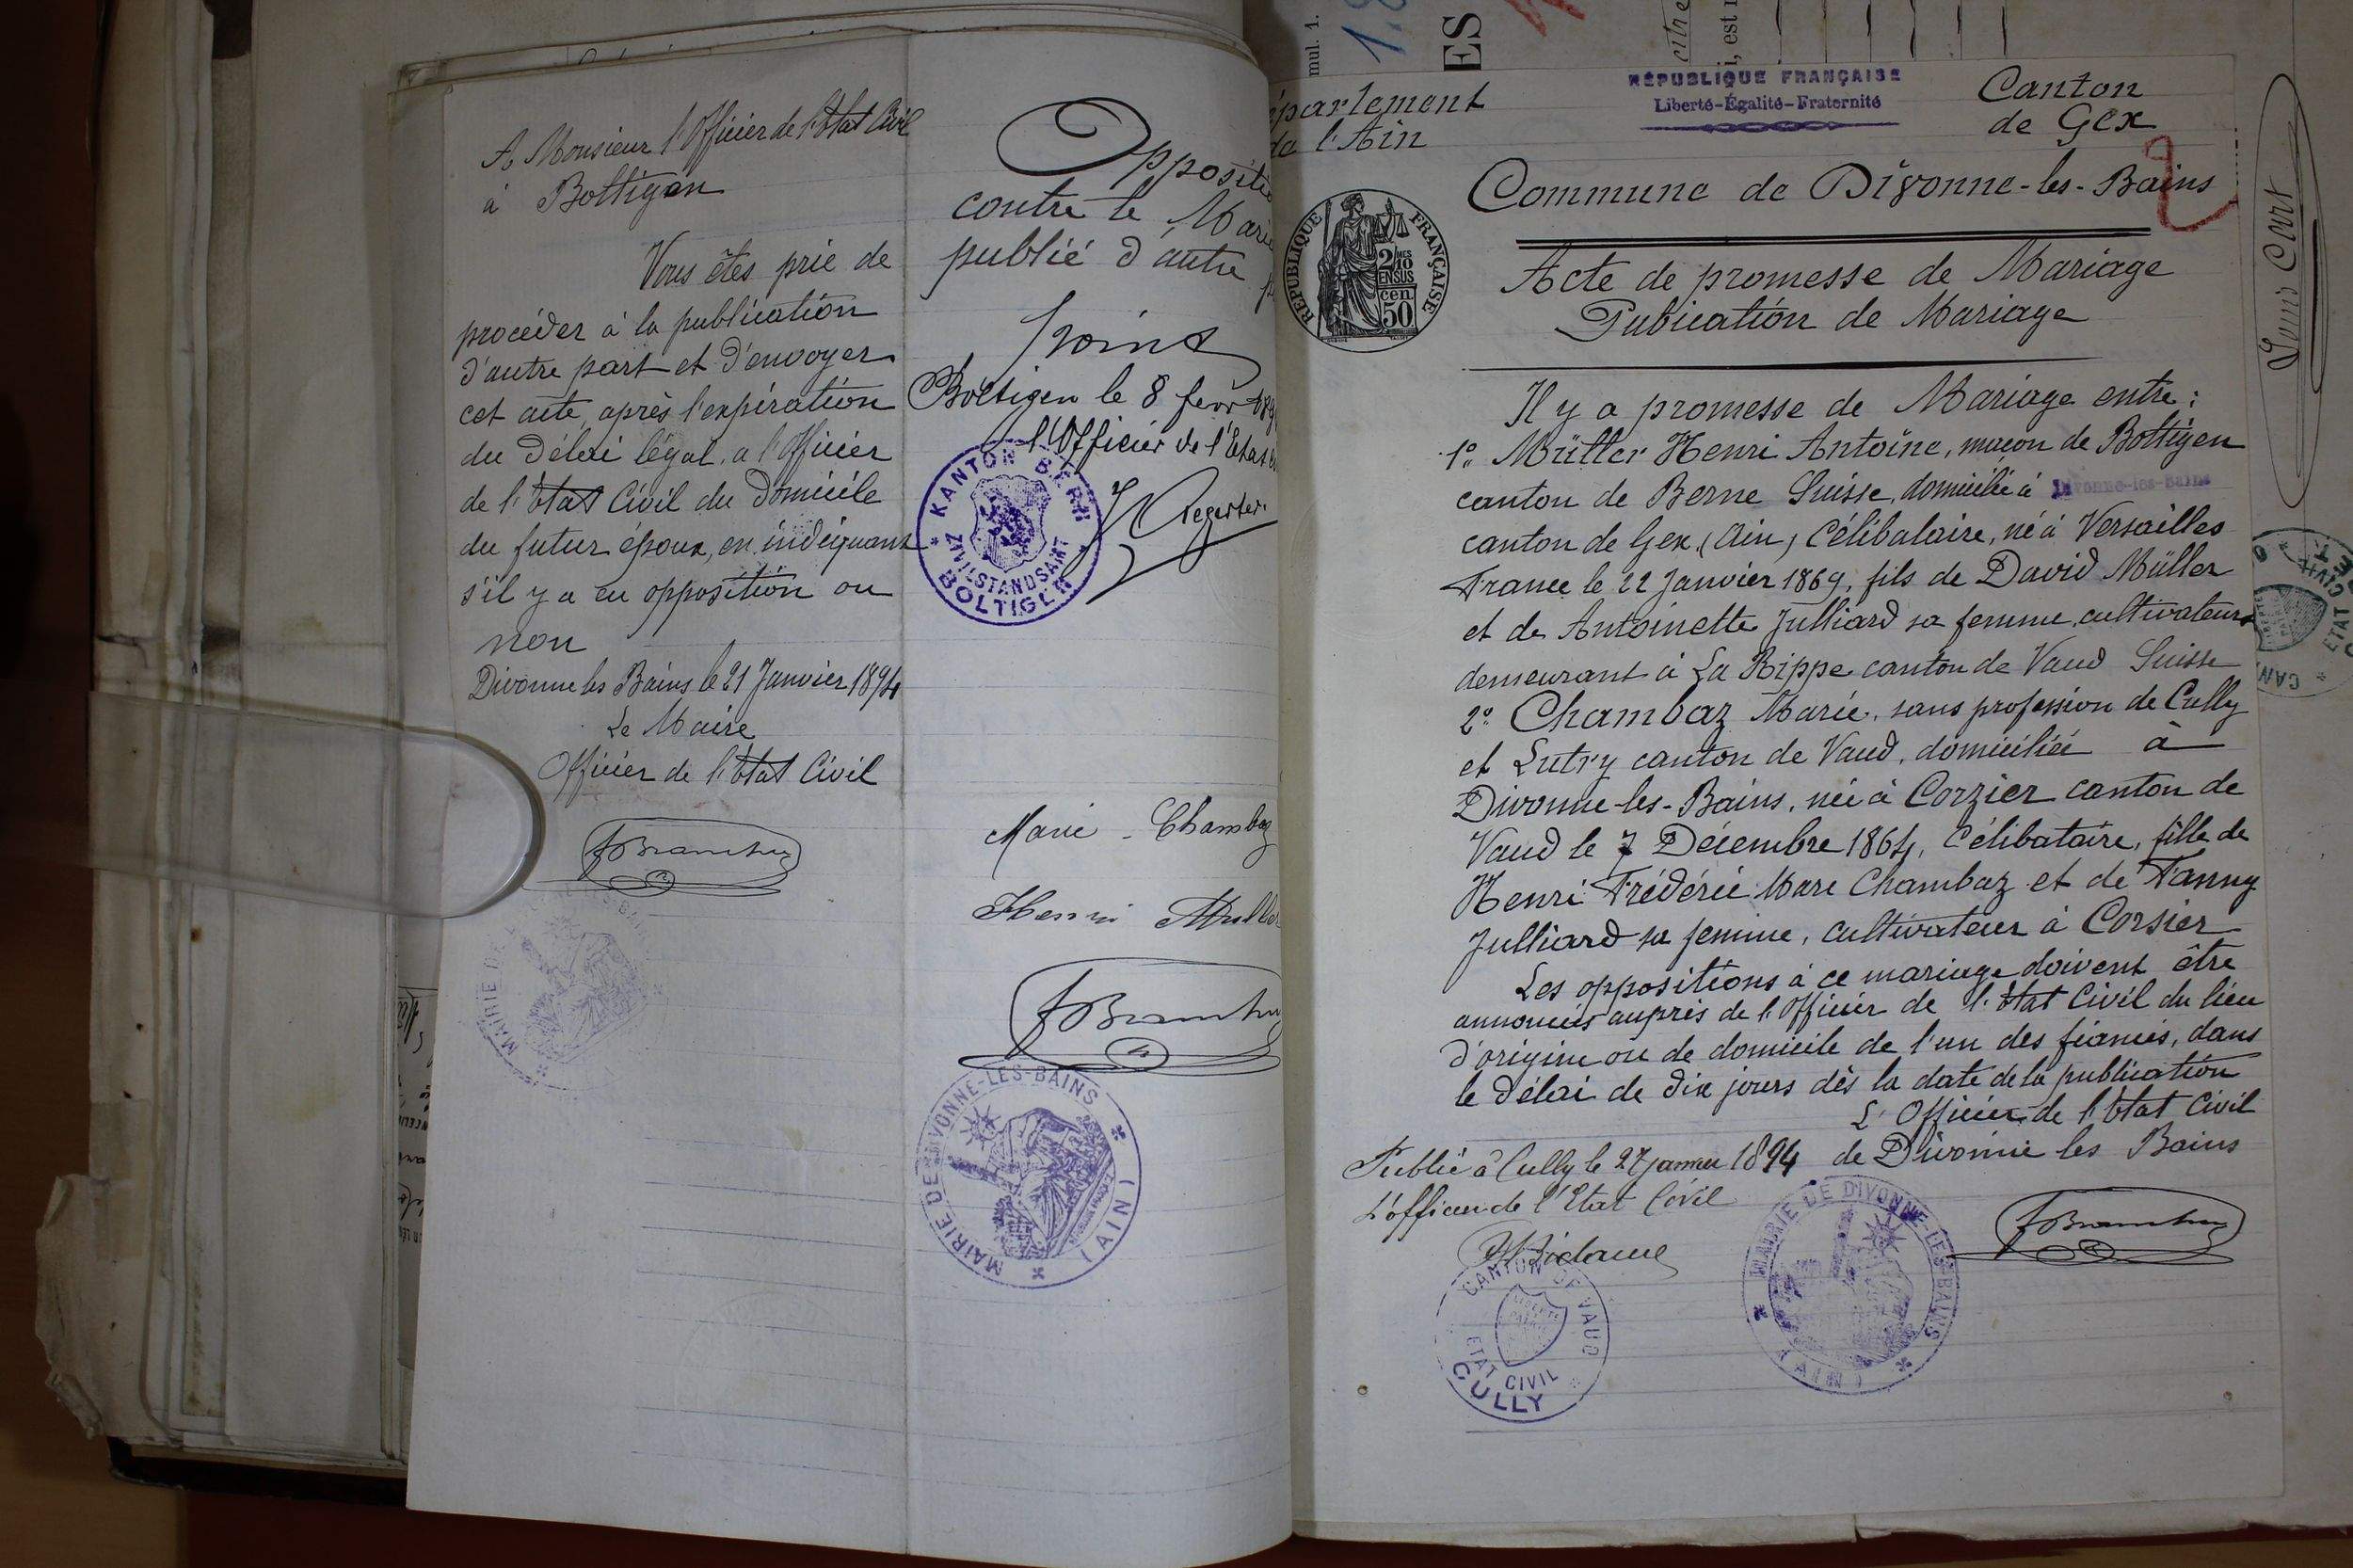 A Monsieur l'Officier de l'Etat Civil
à Boltigen
Vous êtes prié de
procéder à la publication
d'autre part et d'envoyer
cet acte, après l'expiration
du délai légal, a l'Officier
de l'Etat Civil du domicile
du futur époux, en indiquant
s'il y a eu opposition ou
non
Divonne les Bains le 21 Janvier 1894
Le Maire
Officier de l'Etat Civil
MAIRIE DE
Oppositio
contre le Maria
publié d'autre p
Boltigen le 8 fevr 189
l'Officier de l'Etat ci
KANTON BERN
ZIVILSTANDSAMT
BOLTIGEN
Marie Chambaz
Henri Mulle
MAIRIE DE DIVONNE-LES-BAINS
(AIN)
mul. 1.
ES
, est
épartement
de l'Ain
RÉPUBLIQUE FRANÇAISE
Liberté-Égalité-Fraternité
Canton
de Gex
2
Commune de Divonne-les-Bains
RÉPUBLIQUE FRANÇAISE
2/10
EN SUS
50
cen
Acte de promesse de Mariage
Pubication de Mariage
Il y a promesse de Mariage entre:
1° Müller Henri Antoine, maçon de Boltigen
canton de Berne Suisse, domicilié à Divonne-les-Bains
canton de Gex, (Ain) Célibataire, né à Versailles
France le 22 Janvier 1869, fils de David Müller
et de Antoinette Julliard sa femme, cultivateurs
demeurant à La Rippe canton de Vaud Suisse
2° Chambaz Marie, sans profession de Cully
et Lutry canton de Vaud, domiciliée à
Divonne-les-Bains, née à Corzier canton de
Vaud le 7 Décembre 1864, Célibataire, fille de
Henri Frédéric Marc Chambaz et de Fanny
Julliard sa femme, cultivateur à Corsier
Les oppositions à ce mariage doivent être
annoncées auprès de l'Officier de l'Etat Civil du lieu
d'origine ou de domicile de l'un des fiancés, dans
le délai de dix jours dès la date de la publication
L'Officier de l'Etat Civil
de Divonne les Bains
Publié à Cully le 27 janvier 1894
L'officier de l'Etat Civil
CANTON DE VAUD
ETAT CIVIL
CULLY
MAIRIE DE DIVONNE-LES-BAINS
(AIN)
ETAT CIVIL
CAN